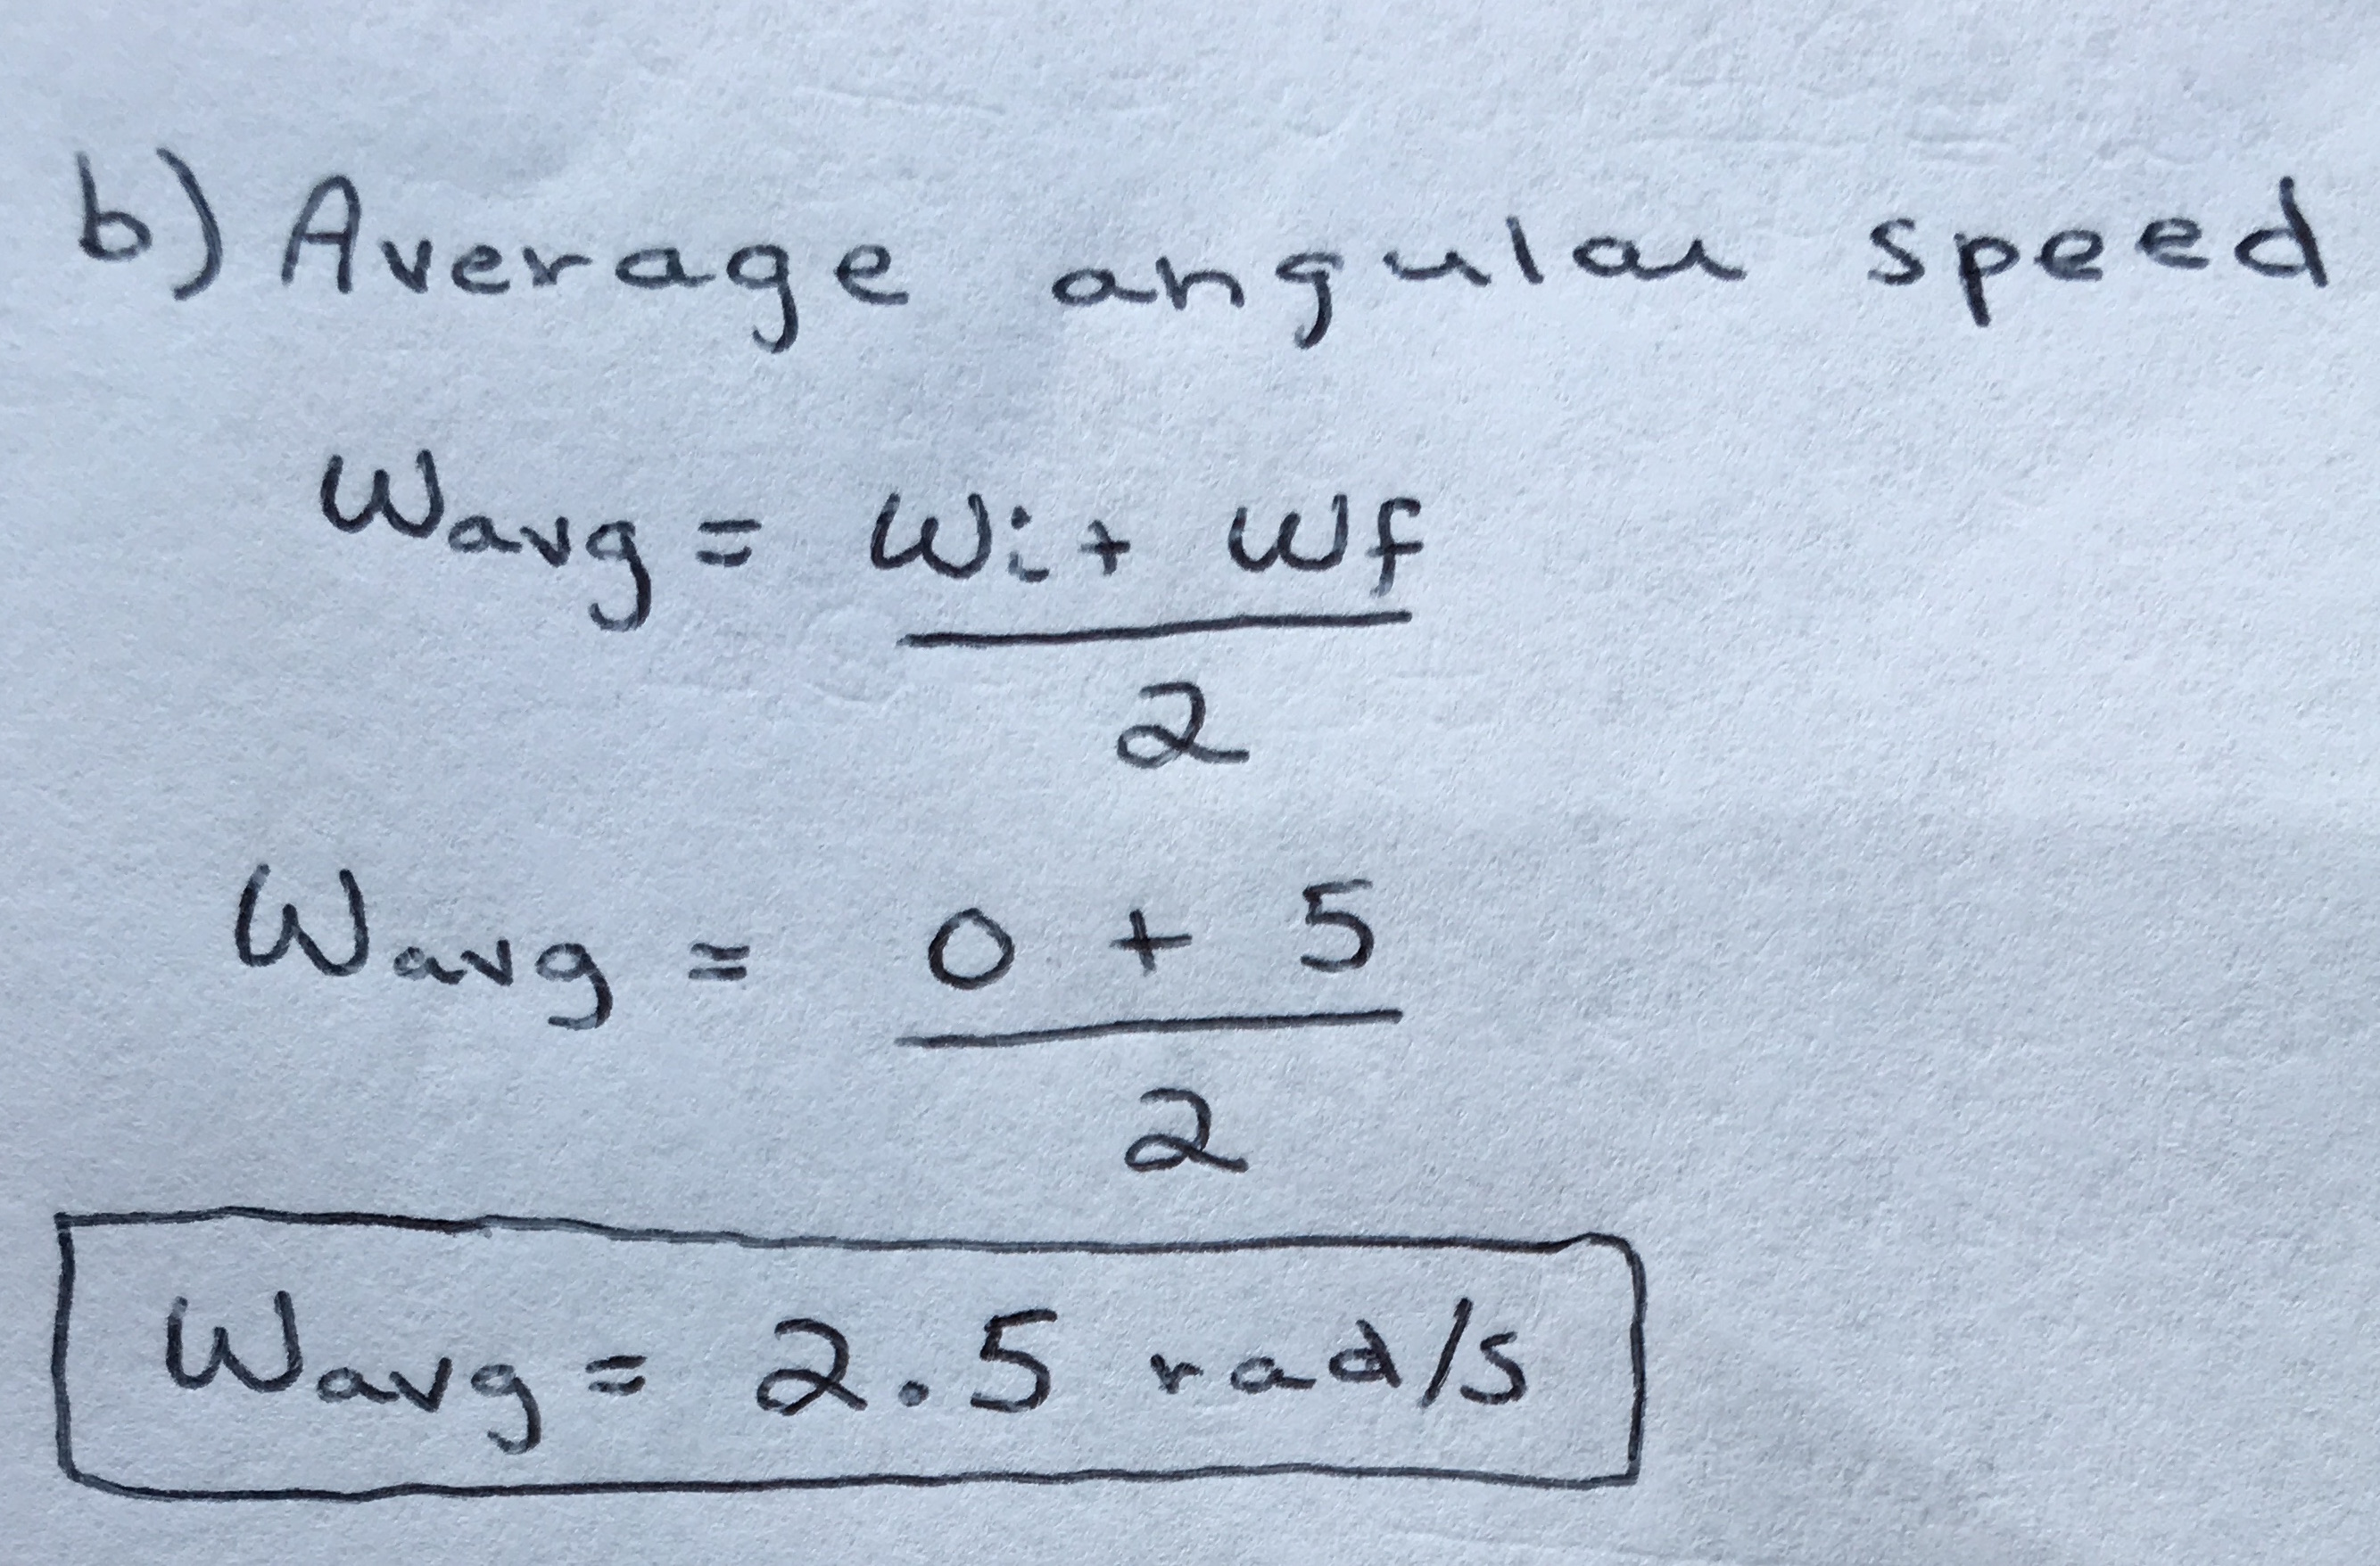 b) Average angular speed
Wavg = Wi + Wf
2
Wavg = 0 + 5
2
Wavg = 2.5 rad/s